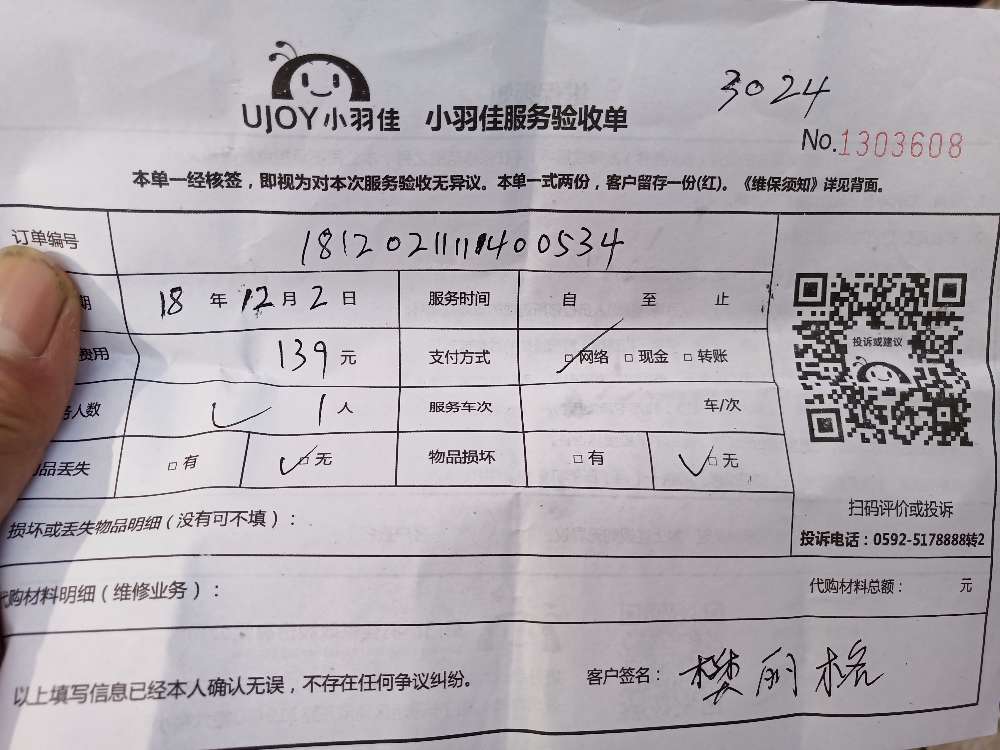 3024
UJOY小羽佳 小羽佳服务验收单
No.1303608
本单一经核签，即视为对本次服务验收无异议。本单一式两份，客户留存一份(红)。《维保须知》详见背面。
订单编号 1812021111400534
期 18 年 12 月 2 日 服务时间 自 至 止
费用 139 元 支付方式 □网络 □现金 □转账
投诉或建议
务人数 1 人 服务车次 车/次
物品丢失 □有 □无 物品损坏 □有 □无
扫码评价或投诉
损坏或丢失物品明细（没有可不填）：
投诉电话：0592-5178888转2
代购材料明细（维修业务）： 代购材料总额： 元
以上填写信息已经本人确认无误，不存在任何争议纠纷。 客户签名：樊丽格